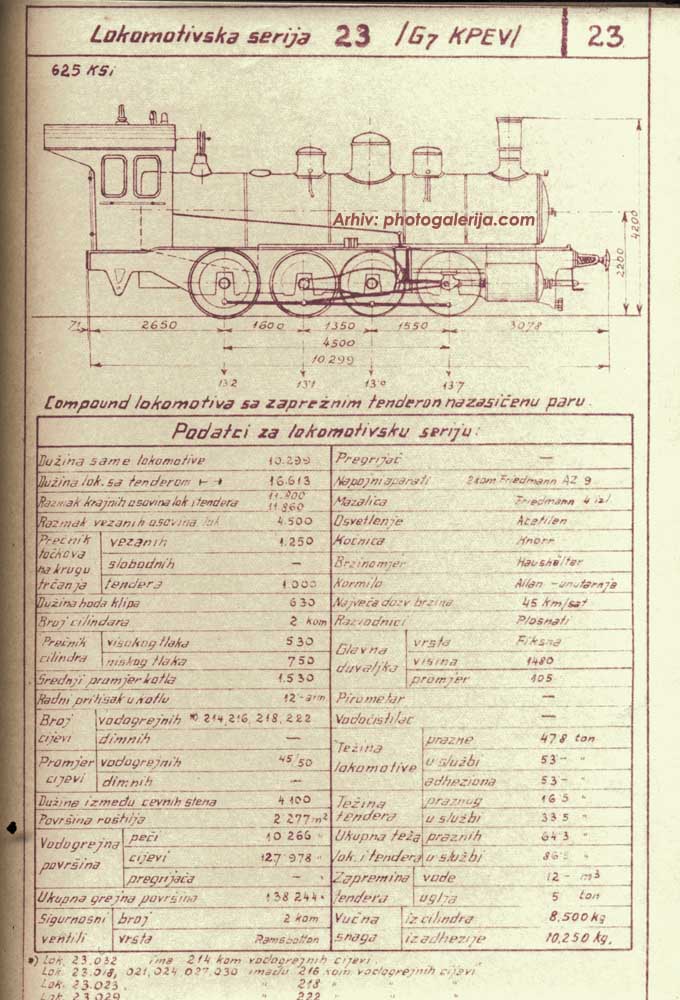 Lokomotivska serija 23 /G7 KPEV/
23
625 KSi
Arhiv: photogalerija.com
4200
2200
71 2650 1600 1350 1550 3078
4500
10.299
13'2 13'1 13'0 13'7
Compound lokomotiva sa zaprežnim tenderom na zasićenu paru.
Podatci za lokomotivsku seriju:
Dužina same lokomotive 10.299
Dužina lok. sa tenderom 16.613
Razmak krajnih osovina lok i tendera 11.800
11.860
Razmak vezanih osovina lok 4.500
Prečnik točkova na krugu trčanja
vezanih 1.250
slobodnih —
tendera 1.000
Dužina hoda klipa 630
Broj cilindara 2 kom
Prečnik cilindra
visokog tlaka 530
niskog tlaka 750
Srednji promjer kotla 1.530
Radni pritisak u kotlu 12 - atm.
Broj cijevi
vodogrejnih *) 214, 216, 218, 222
dimnih —
Promjer cijevi
vodogrejnih 45/50
dimnih —
Dužina između cevnih stena 4 100
Površina roštilja 2 277 m²
Vodogrejna površina
peći 10 266 "
cijevi 127 978 "
pregrijača — "
Ukupna grejna površina 138 244 "
Sigurnosni ventili
broj 2 kom
vrsta Ramsbotton
Pregrijač —
Napojni aparati 2 kom Friedmann AZ 9
Mazalica Friedmann 4 izl.
Osvetlenje Acetilen
Kočnica Knorr
Brzinomjer Haushälter
Kormilo Allan - unutarnje
Najveća dozv brzina 45 km/sat
Razvodnici Plosnati
Glavna duvaljka
vrsta Fiksna
visina 1480
promjer 105
Pirometar —
Vodočistilac —
Težina lokomotive
prazne 47 8 ton
u službi 53 - "
adheziona 53 - "
Težina tendera
praznog 16 5 "
u službi 33 5 "
Ukupna teža lok. i tendera
praznih 64 3 "
u službi 86 5 "
Zapremina tendera
vode 12 - m³
uglja 5 ton
Vučna snaga
iz cilindra 8.500 kg
iz adhezije 10,250 kg.
*) Lok. 23.032 ima 214 kom vodogrejnih cijevi.
Lok. 23.018, 021, 024, 027, 030 imadu 216 kom. vodogrejnih cijevi
Lok. 23.023 " 218 "
Lok. 23.029 " 222 "